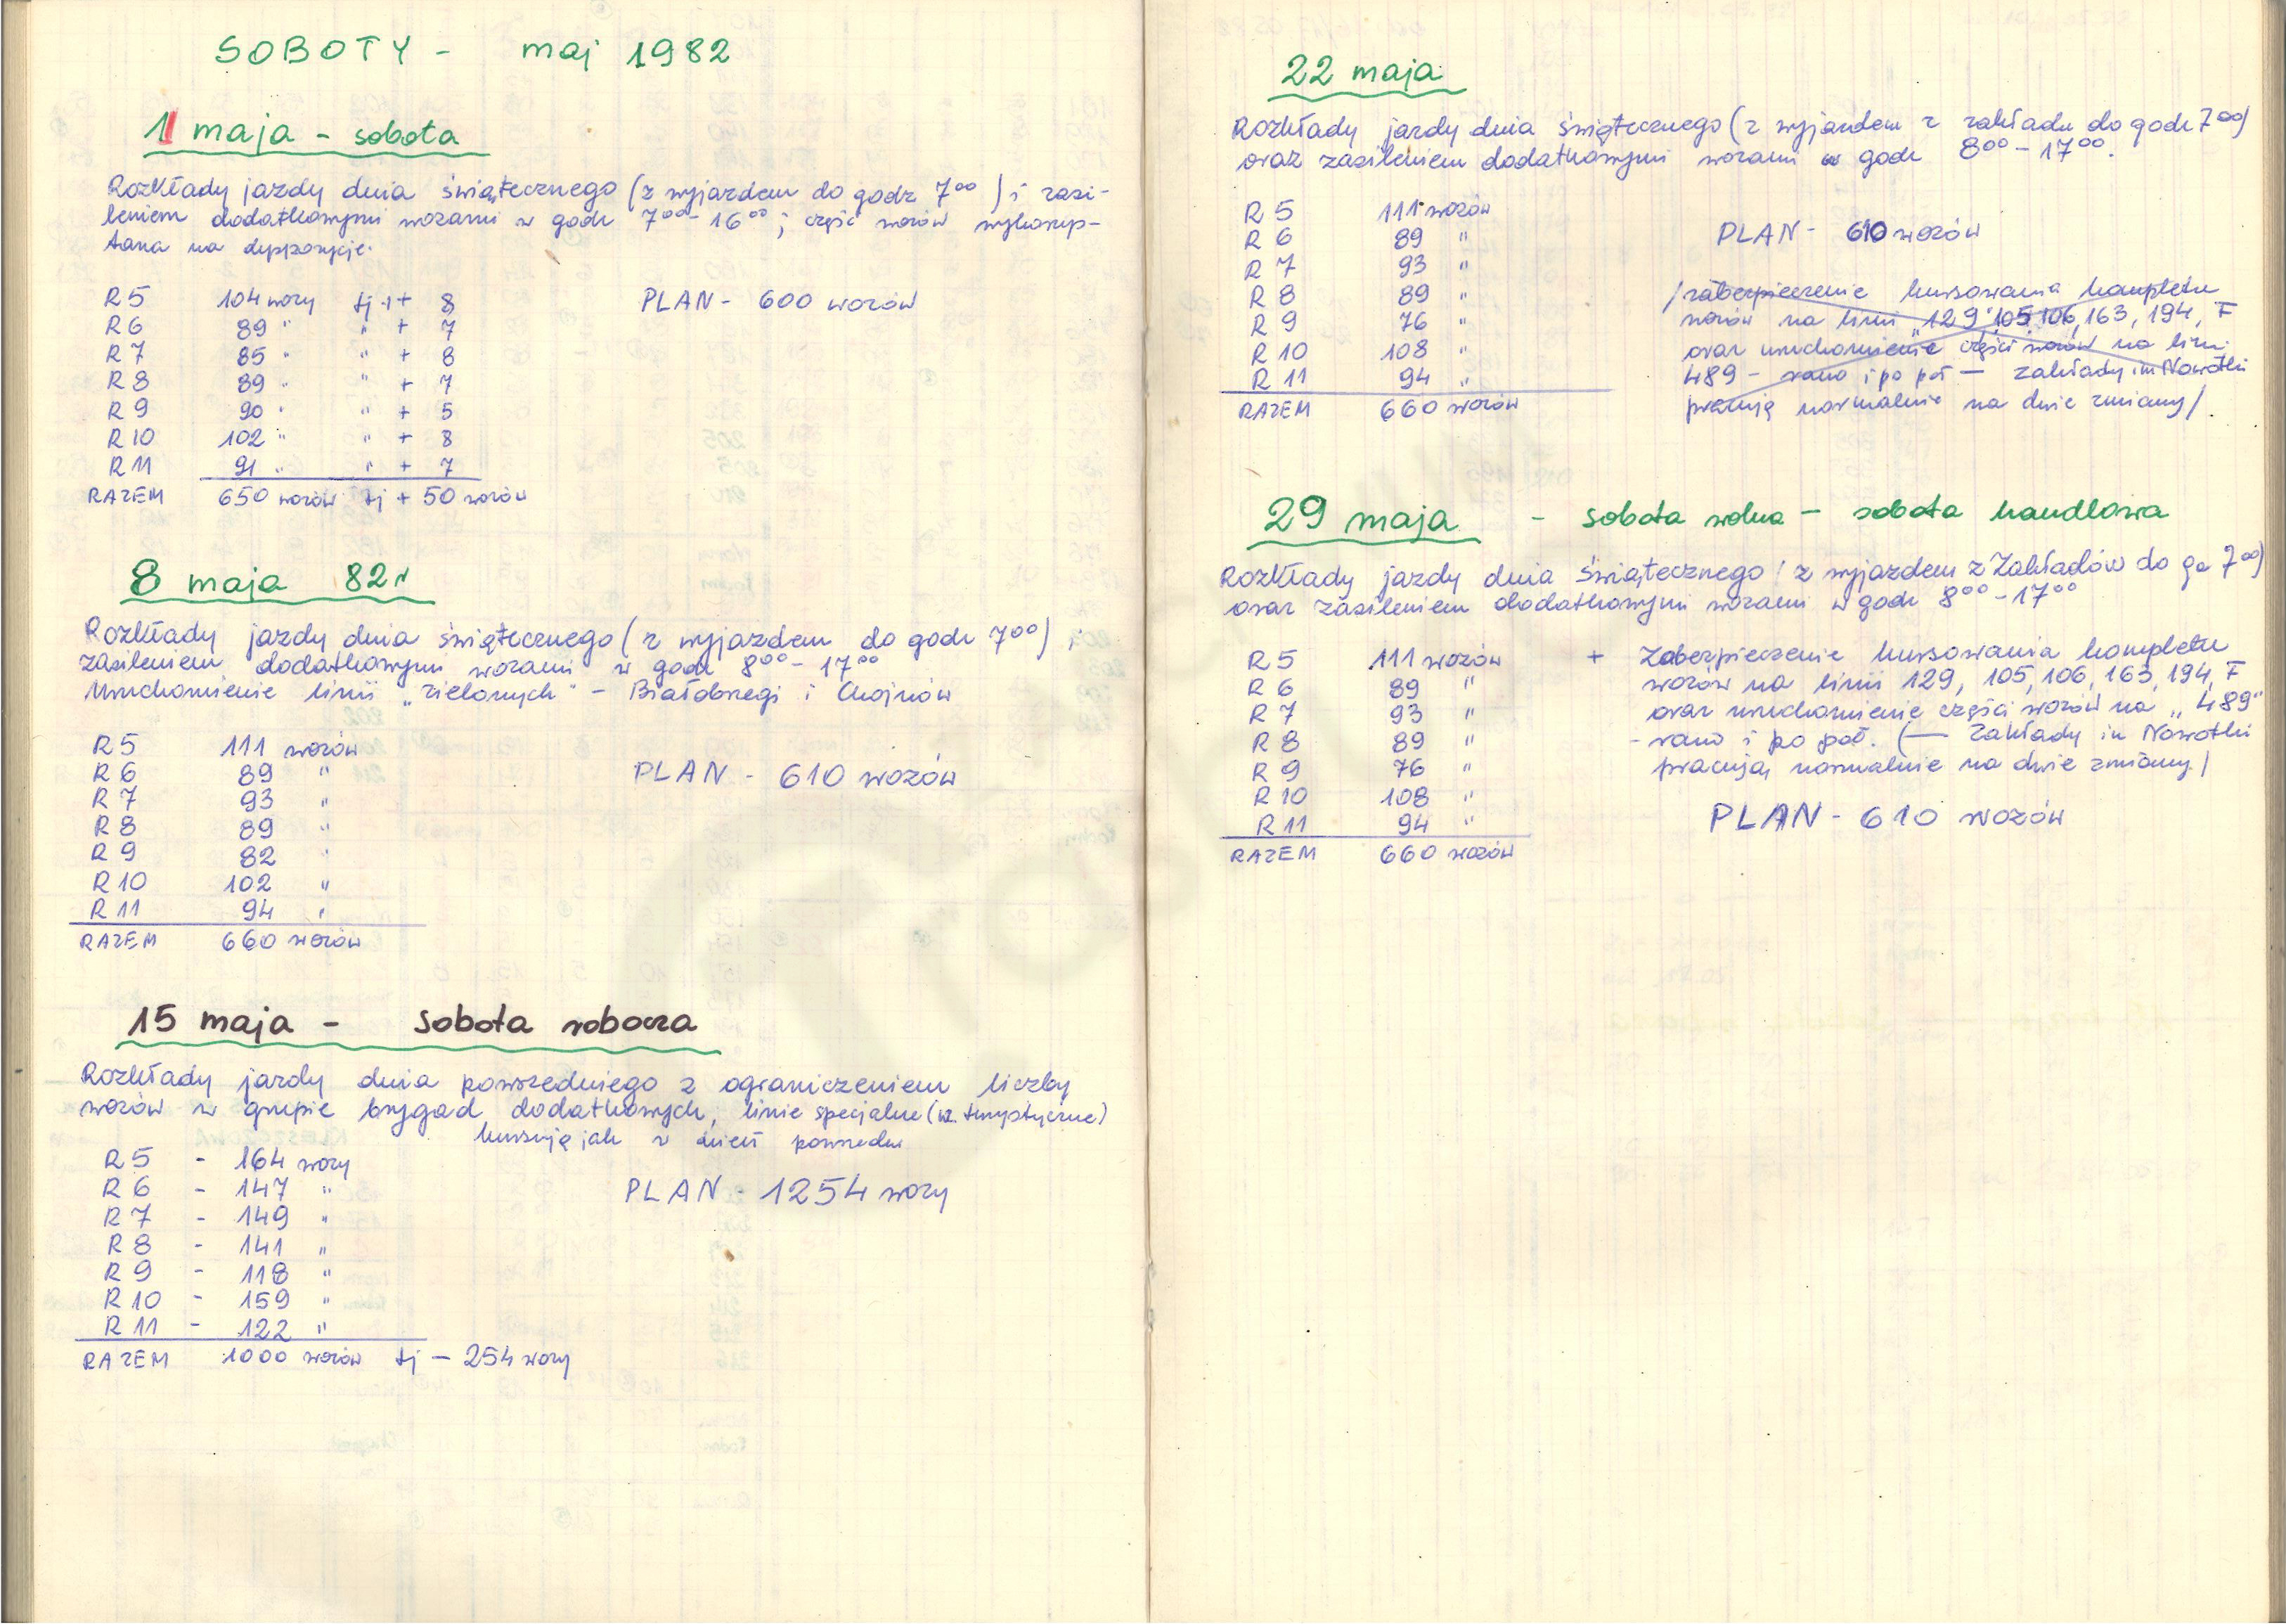 SOBOTY - maj 1982
1 maja - sobota
Rozkłady jazdy dnia świątecznego (z wyjazdem do godz 7⁰⁰) i zasi-
leniem dodatkowymi wozami w godz 7⁰⁰-16⁰⁰; część wozów wykorzys-
tana na dyspozycje.
R5 104 wozy tj + 8
R6 89 " " + 7
R7 85 " " + 8
R8 89 " " + 7
R9 90 " " + 5
R10 102 " " + 8
R11 91 " " + 7
RAZEM 650 wozów tj + 50 wozów
PLAN - 600 wozów
8 maja 82r
Rozkłady jazdy dnia świątecznego (z wyjazdem do godz 7⁰⁰) i
zasileniem dodatkowymi wozami w godz 8⁰⁰-17⁰⁰
Uruchomienie linii „zielonych" - Białobrzegi i Chojnów
R5 111 wozów
R6 89 "
R7 93 "
R8 89 "
R9 82 "
R10 102 "
R11 94 "
RAZEM 660 wozów
PLAN - 610 wozów
15 maja - sobota robocza
Rozkłady jazdy dnia powszedniego z ograniczeniem liczby
wozów w grupie brygad dodatkowych, linie specjalne (w. turystyczne)
kursują jak w dzień powszedni
R5 - 164 wozy
R6 - 147 "
R7 - 149 "
R8 - 141 "
R9 - 118 "
R10 - 159 "
R11 - 122 "
RAZEM 1000 wozów tj - 254 wozy
PLAN - 1254 wozy
22 maja
Rozkłady jazdy dnia świątecznego (z wyjazdem z zakładu do godz 7⁰⁰)
oraz zasileniem dodatkowymi wozami w godz 8⁰⁰-17⁰⁰.
R5 111 wozów
R6 89 "
R7 93 "
R8 89 "
R9 76 "
R10 108 "
R11 94 "
RAZEM 660 wozów
PLAN - 610 wozów
/zabezpieczenie kursowania kompletu
wozów na linii „129" 105, 106, 163, 194, F
oraz uruchomienie części wozów na linii
489 - rano i po poł — zakłady im Nowotki
pracują normalnie na dwie zmiany/
29 maja - sobota wolna - sobota handlowa
Rozkłady jazdy dnia świątecznego (z wyjazdem z Zakładów do go 7⁰⁰)
oraz zasileniem dodatkowymi wozami w godz 8⁰⁰-17⁰⁰
R5 111 wozów
R6 89 "
R7 93 "
R8 89 "
R9 76 "
R10 108 "
R11 94 "
RAZEM 660 wozów
+ Zabezpieczenie kursowania kompletu
wozów na linii 129, 105, 106, 163, 194, F
oraz uruchomienie części wozów na „489"
- rano i po poł. (— Zakłady im Nowotki
pracują normalnie na dwie zmiany)
PLAN - 610 wozów